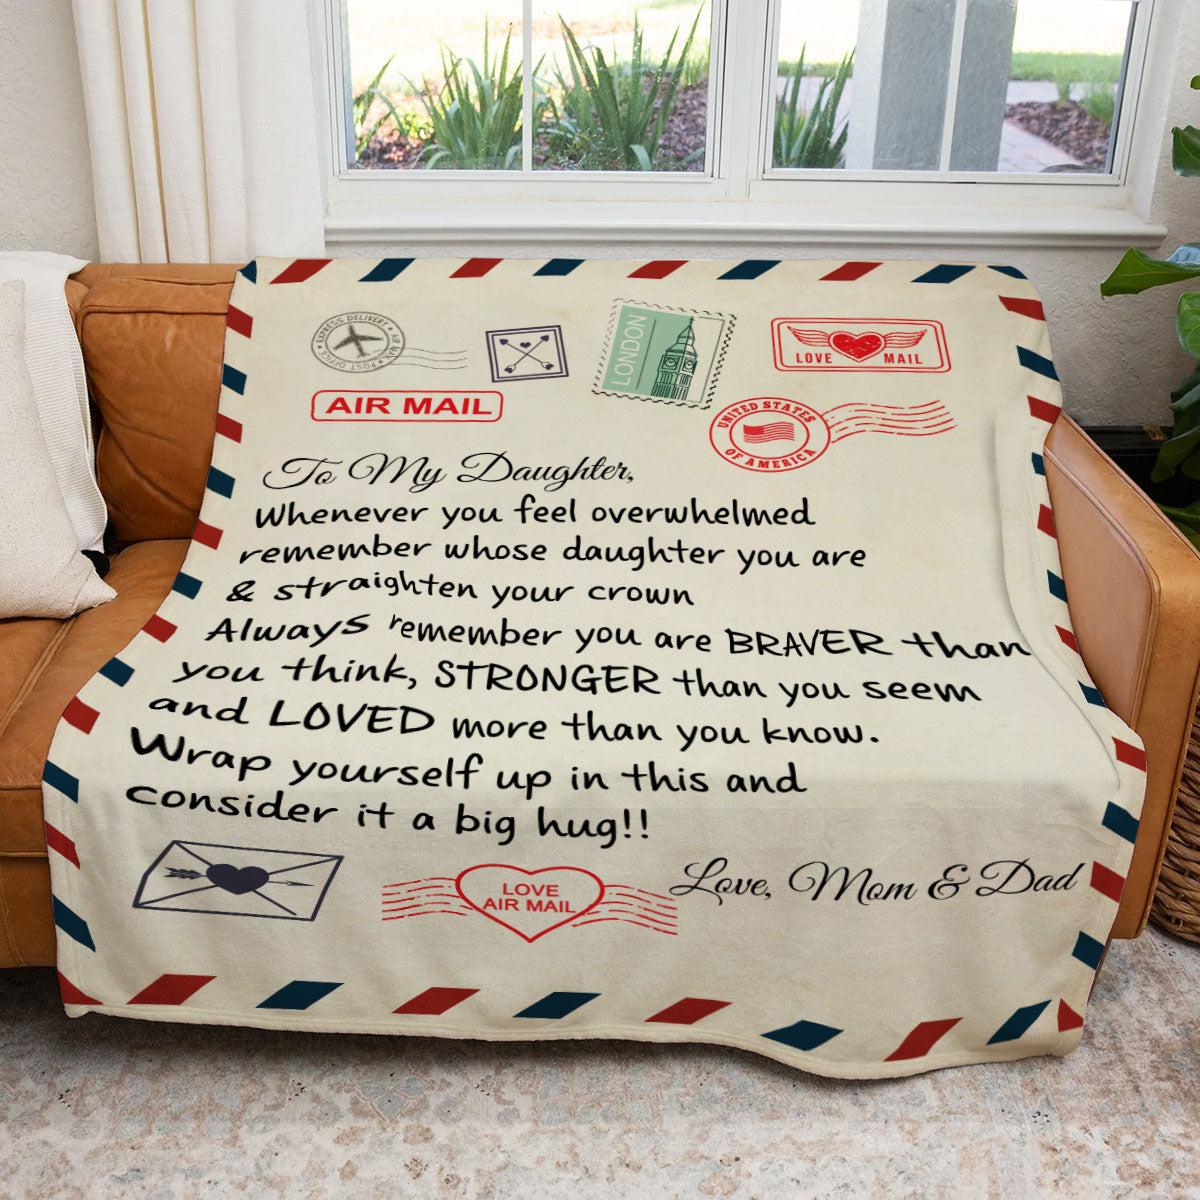 EXPRESS DELIVERY • AIR MAIL • POST OFFICE
LONDON
LOVE MAIL
AIR MAIL
UNITED STATES
OF AMERICA
To My Daughter,
Whenever you feel overwhelmed
remember whose daughter you are
& straighten your crown
Always remember you are BRAVER than
you think, STRONGER than you seem
and LOVED more than you know.
Wrap yourself up in this and
consider it a big hug!!
LOVE
AIR MAIL
Love, Mom & Dad